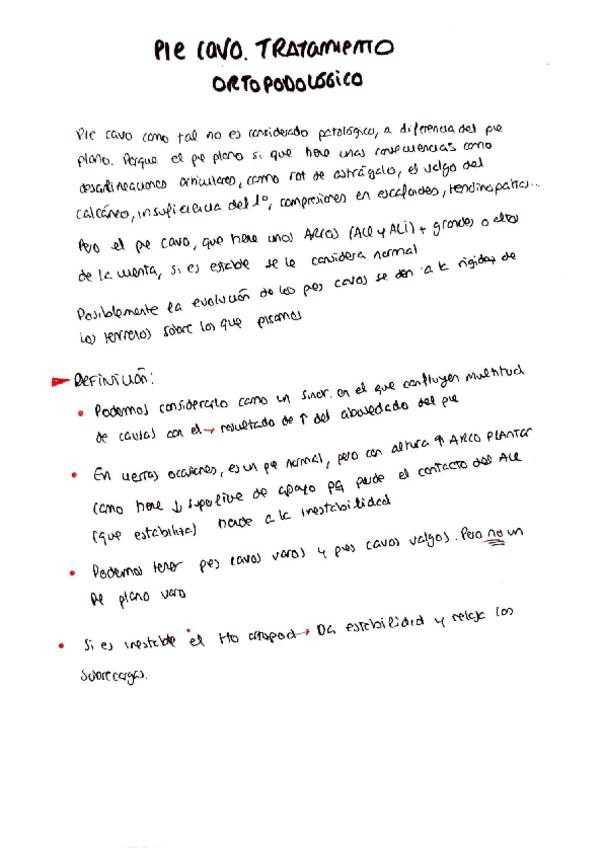 PIE CAVO. TRATAMIENTO
ORTOPODOLÓGICO
Pie cavo como tal no es considerado patológico, a diferencia del pie
plano. Porque el pie plano si que tiene unas consecuencias como
desalineaciones articulares, como rot de astrágalo, el valgo del
calcáneo, insuficiencia del 1º, compresiones en escafoides, tendinopatías...
Pero el pie cavo, que tiene unos ARCOS (ALE y ALI) + grandes o altos
de la cuenta, si es estable se le considera normal
Posiblemente la evolución de los pies cavos se den a la rigidez de
los terrenos sobre los que pisamos
Definición:
• Podemos considerarlo como un síndr. en el que confluyen multitud
de causas con el → resultado de ↑ del abovedado del pie
• En ciertas ocasiones, es un pie normal, pero con altura ↑ ARCO PLANTAR
como tiene ↓ superficie de apoyo pq pierde el contacto del ALE
(que estabiliza) tiende a la inestabilidad
• Podemos tener pies cavos varos y pies cavos valgos. Pero no un
pie plano varo
• Si es inestable el tto ortopod → Da estabilidad y relaja las
sobrecargas.